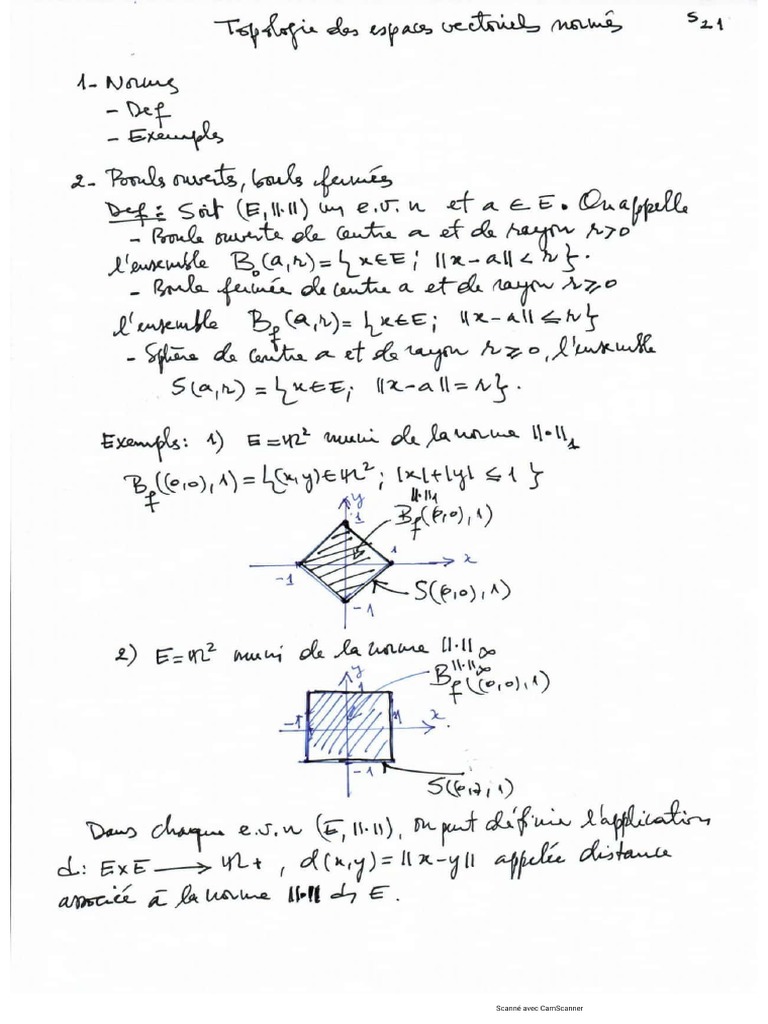 Topologie des espaces vectoriels normés
S21
1- Normes
- Def
- Exemples
2- Bouls ouverts, bouls fermés
Def : Soit (E, ||·||) un e.v.n et a ∈ E. On appelle
- Boule ouverte de centre a et de rayon r>0
l'ensemble B₀(a,r) = {x∈E ; ||x-a|| < r}.
- Boule fermée de centre a et de rayon r≥0
l'ensemble B_f(a,r) = {x∈E ; ||x-a|| ≤ r}
- Sphère de centre a et de rayon r≥0, l'ensemble
S(a,r) = {x∈E ; ||x-a|| = r}.
Exempls : 1) E=ℝ² muni de la norme ||·||₁
B_f((0,0),1) = {(x,y)∈ℝ² ; |x|+|y| ≤ 1}
y
1
||·||₁
B_f((0,0),1)
-1
1
x
-1
S((0,0),1)
2) E=ℝ² muni de la norme ||·||∞
y
1
||·||∞
B_f((0,0),1)
-1
1
x
-1
Dans chaque e.v.n (E, ||·||), on peut définir l'application
d : E×E → ℝ+, d(x,y) = ||x-y|| appelée distance
associée à la norme ||·|| E.
Scanné avec CamScanner